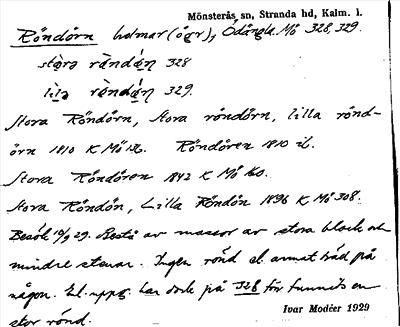 Mönsterås sn, Stranda hd, Kalm. l.
Röndörn holmar (öar), Ödängla. Mö 328, 329.
328
329.
Stora Röndörn, Stora röndörn, lilla rönd-
örn 1810 K Mö Röndören 1810 il.
Stora Röndören 1842 K Mö
Stora Röndön, Lilla Röndön 1896 K Mö 308.
Besök 10/9 29. Bestå av massor av stora block och
mindre stenar. Ingen rönd el. annat träd på
någon. El. uppg. har dock på 328 för funnits en
stor rönd.
Ivar Modéer 1929